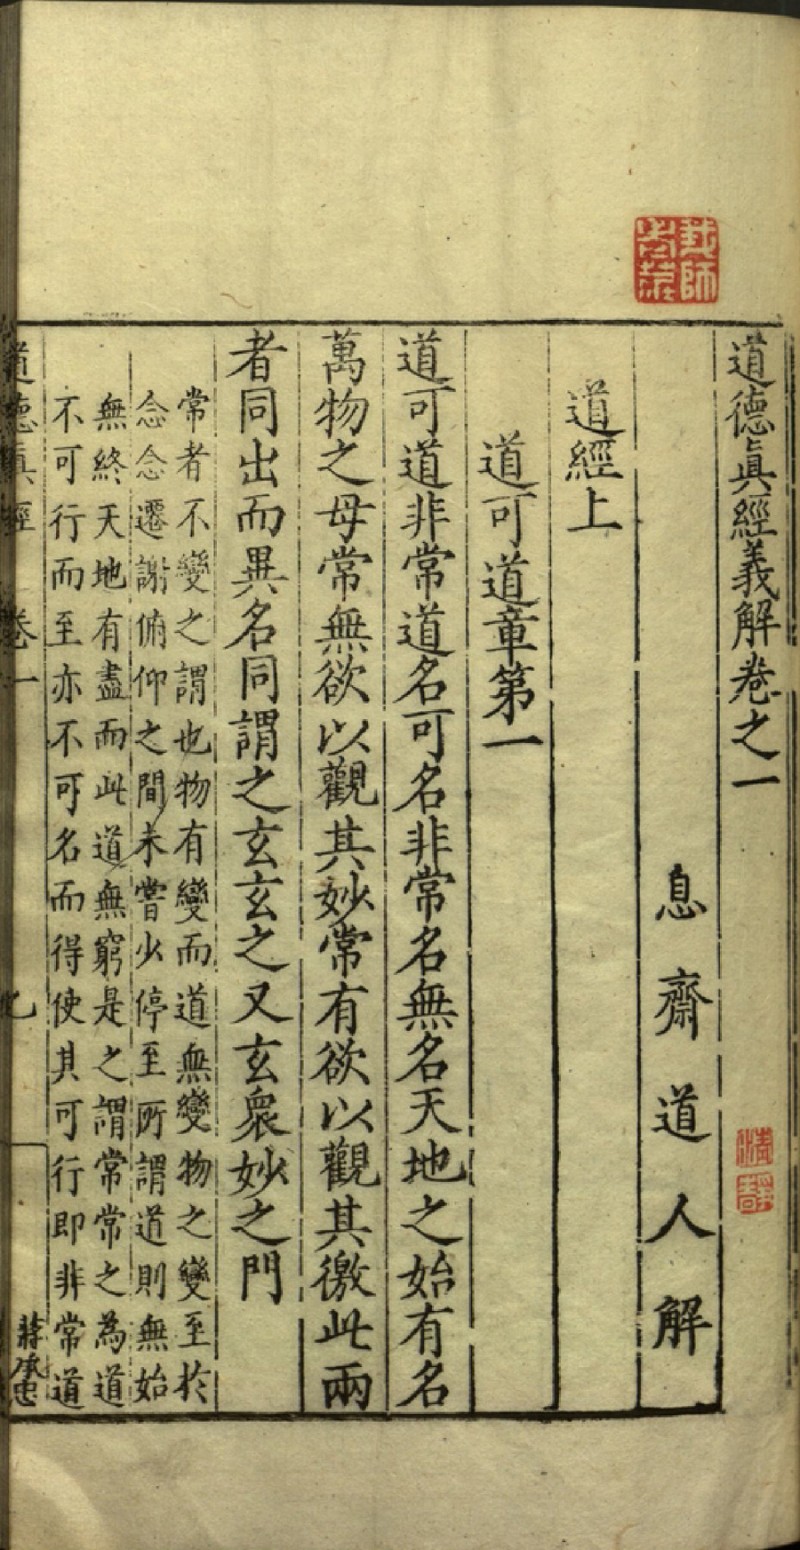 道德真經義解卷之一
息齋道人解
道經上
道可道章第一
道可道非常道名可名非常名無名天地之始有名
萬物之母常無欲以觀其妙常有欲以觀其徼此兩
者同出而異名同謂之玄玄之又玄衆妙之門
常者不變之謂也物有變而道無變物之變至於
念念遷謝俯仰之間未嘗少停至所謂道則無始
無終天地有盡而此道無窮是之謂常常之為道
不可行而至亦不可名而得使其可行即非常道
道德真經 卷一